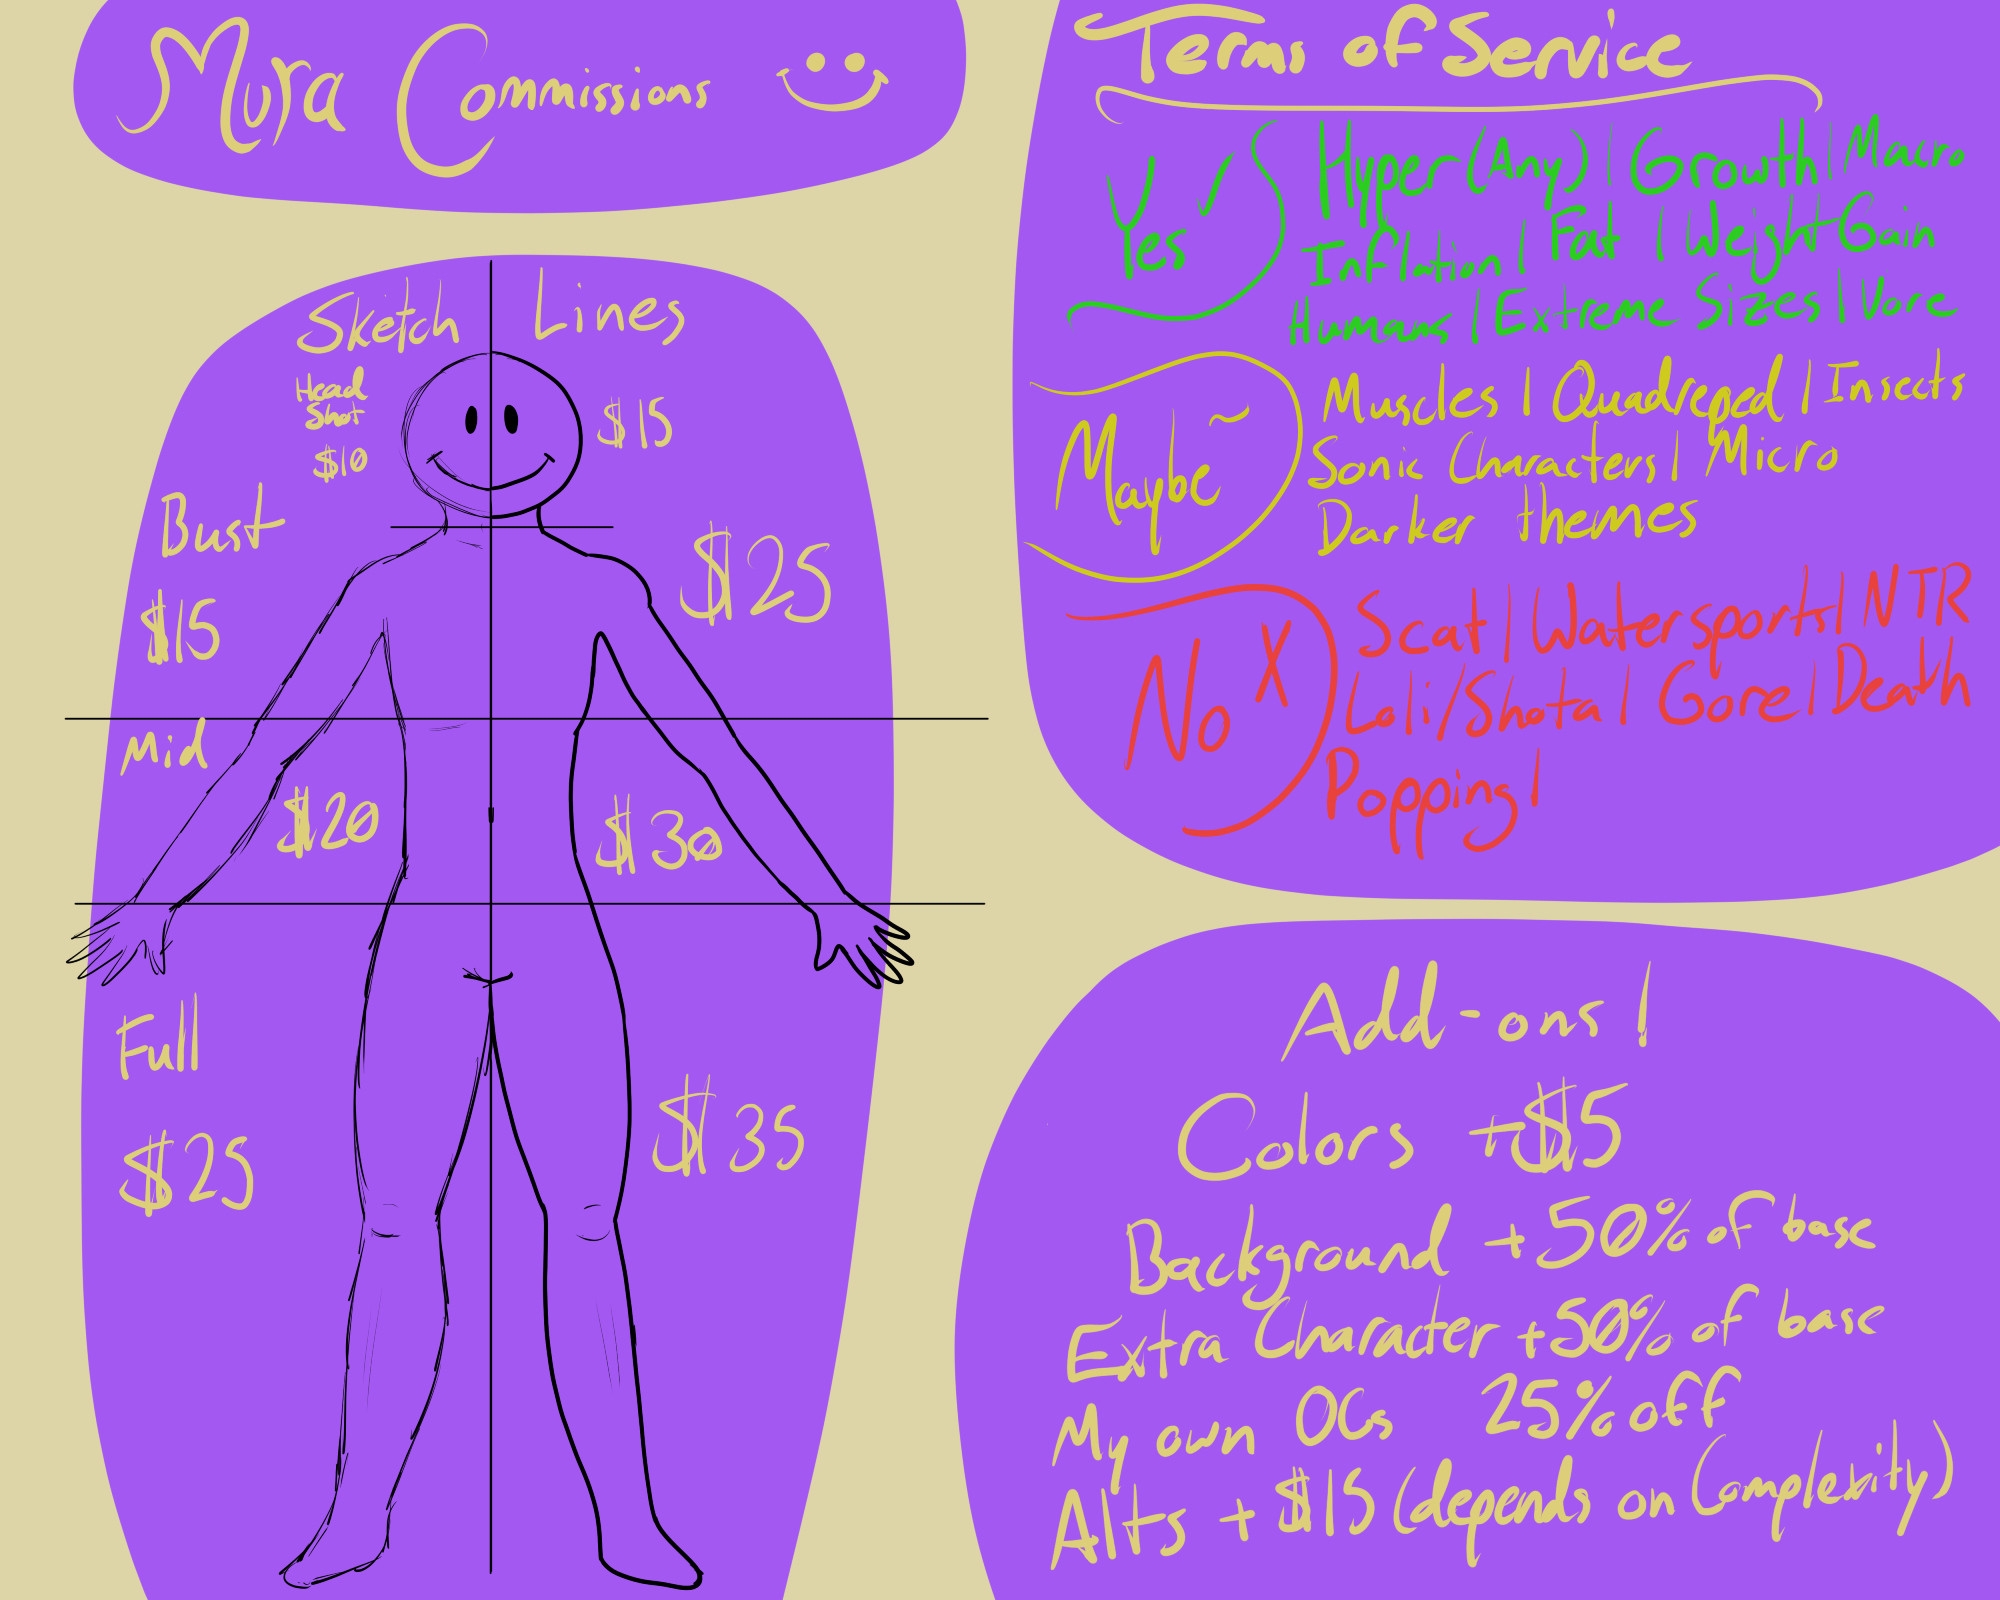 Mura Commissions
Sketch Lines
Head
Shot
$10
$15
Bust
$15
$25
Mid
$20
$30
Full
$25
$35
Terms of Service
Yes ✓
Hyper (Any) | Growth | Macro
Inflation | Fat | Weight Gain
Humans | Extreme Sizes | Vore
Maybe ~
Muscles | Quadreped | Insects
Sonic Characters | Micro
Darker themes
No X
Scat | Watersports | NTR
Loli/Shota | Gore | Death
Popping |
Add-ons!
Colors +$5
Background +50% of base
Extra Character +50% of base
My own OCs 25% off
Alts + $15 (depends on Complexity)